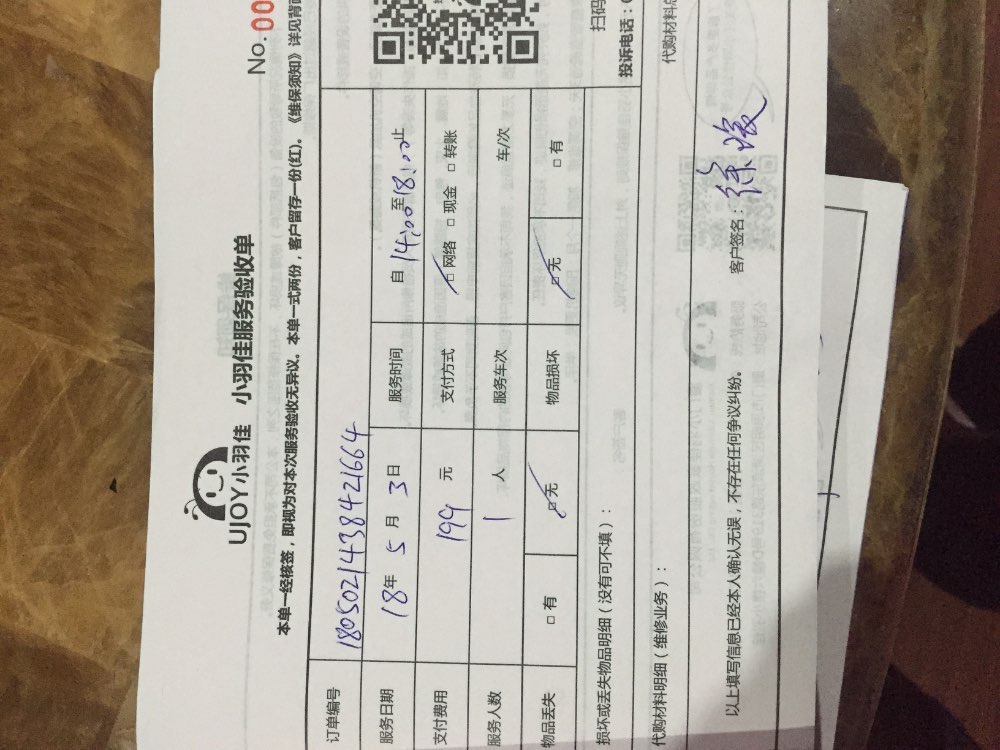 No. 00
UJOY小羽佳 小羽佳服务验收单
本单一经核签，即视为对本次服务验收无异议。本单一式两份，客户留存一份(红)。《维保须知》详见背面
订单编号 1805021438421664
服务日期 18年 5 月 3 日 服务时间 自 14:00 至 18:00 止
支付费用 199 元 支付方式 □ 网络 □ 现金 □ 转账
服务人数 1 人 服务车次 车/次
物品丢失 □ 有 □ 无 物品损坏 □ 无 □ 有
损坏或丢失物品明细（没有可不填）： 扫码
投诉电话：
代购材料明细（维修业务）： 代购材料总
以上填写信息已经本人确认无误，不存在任何争议纠纷。 客户签名：